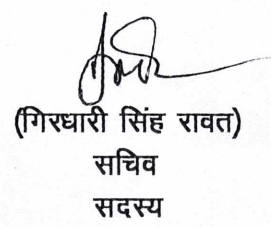 (गिरधारी सिंह रावत)
सचिव
सदस्य